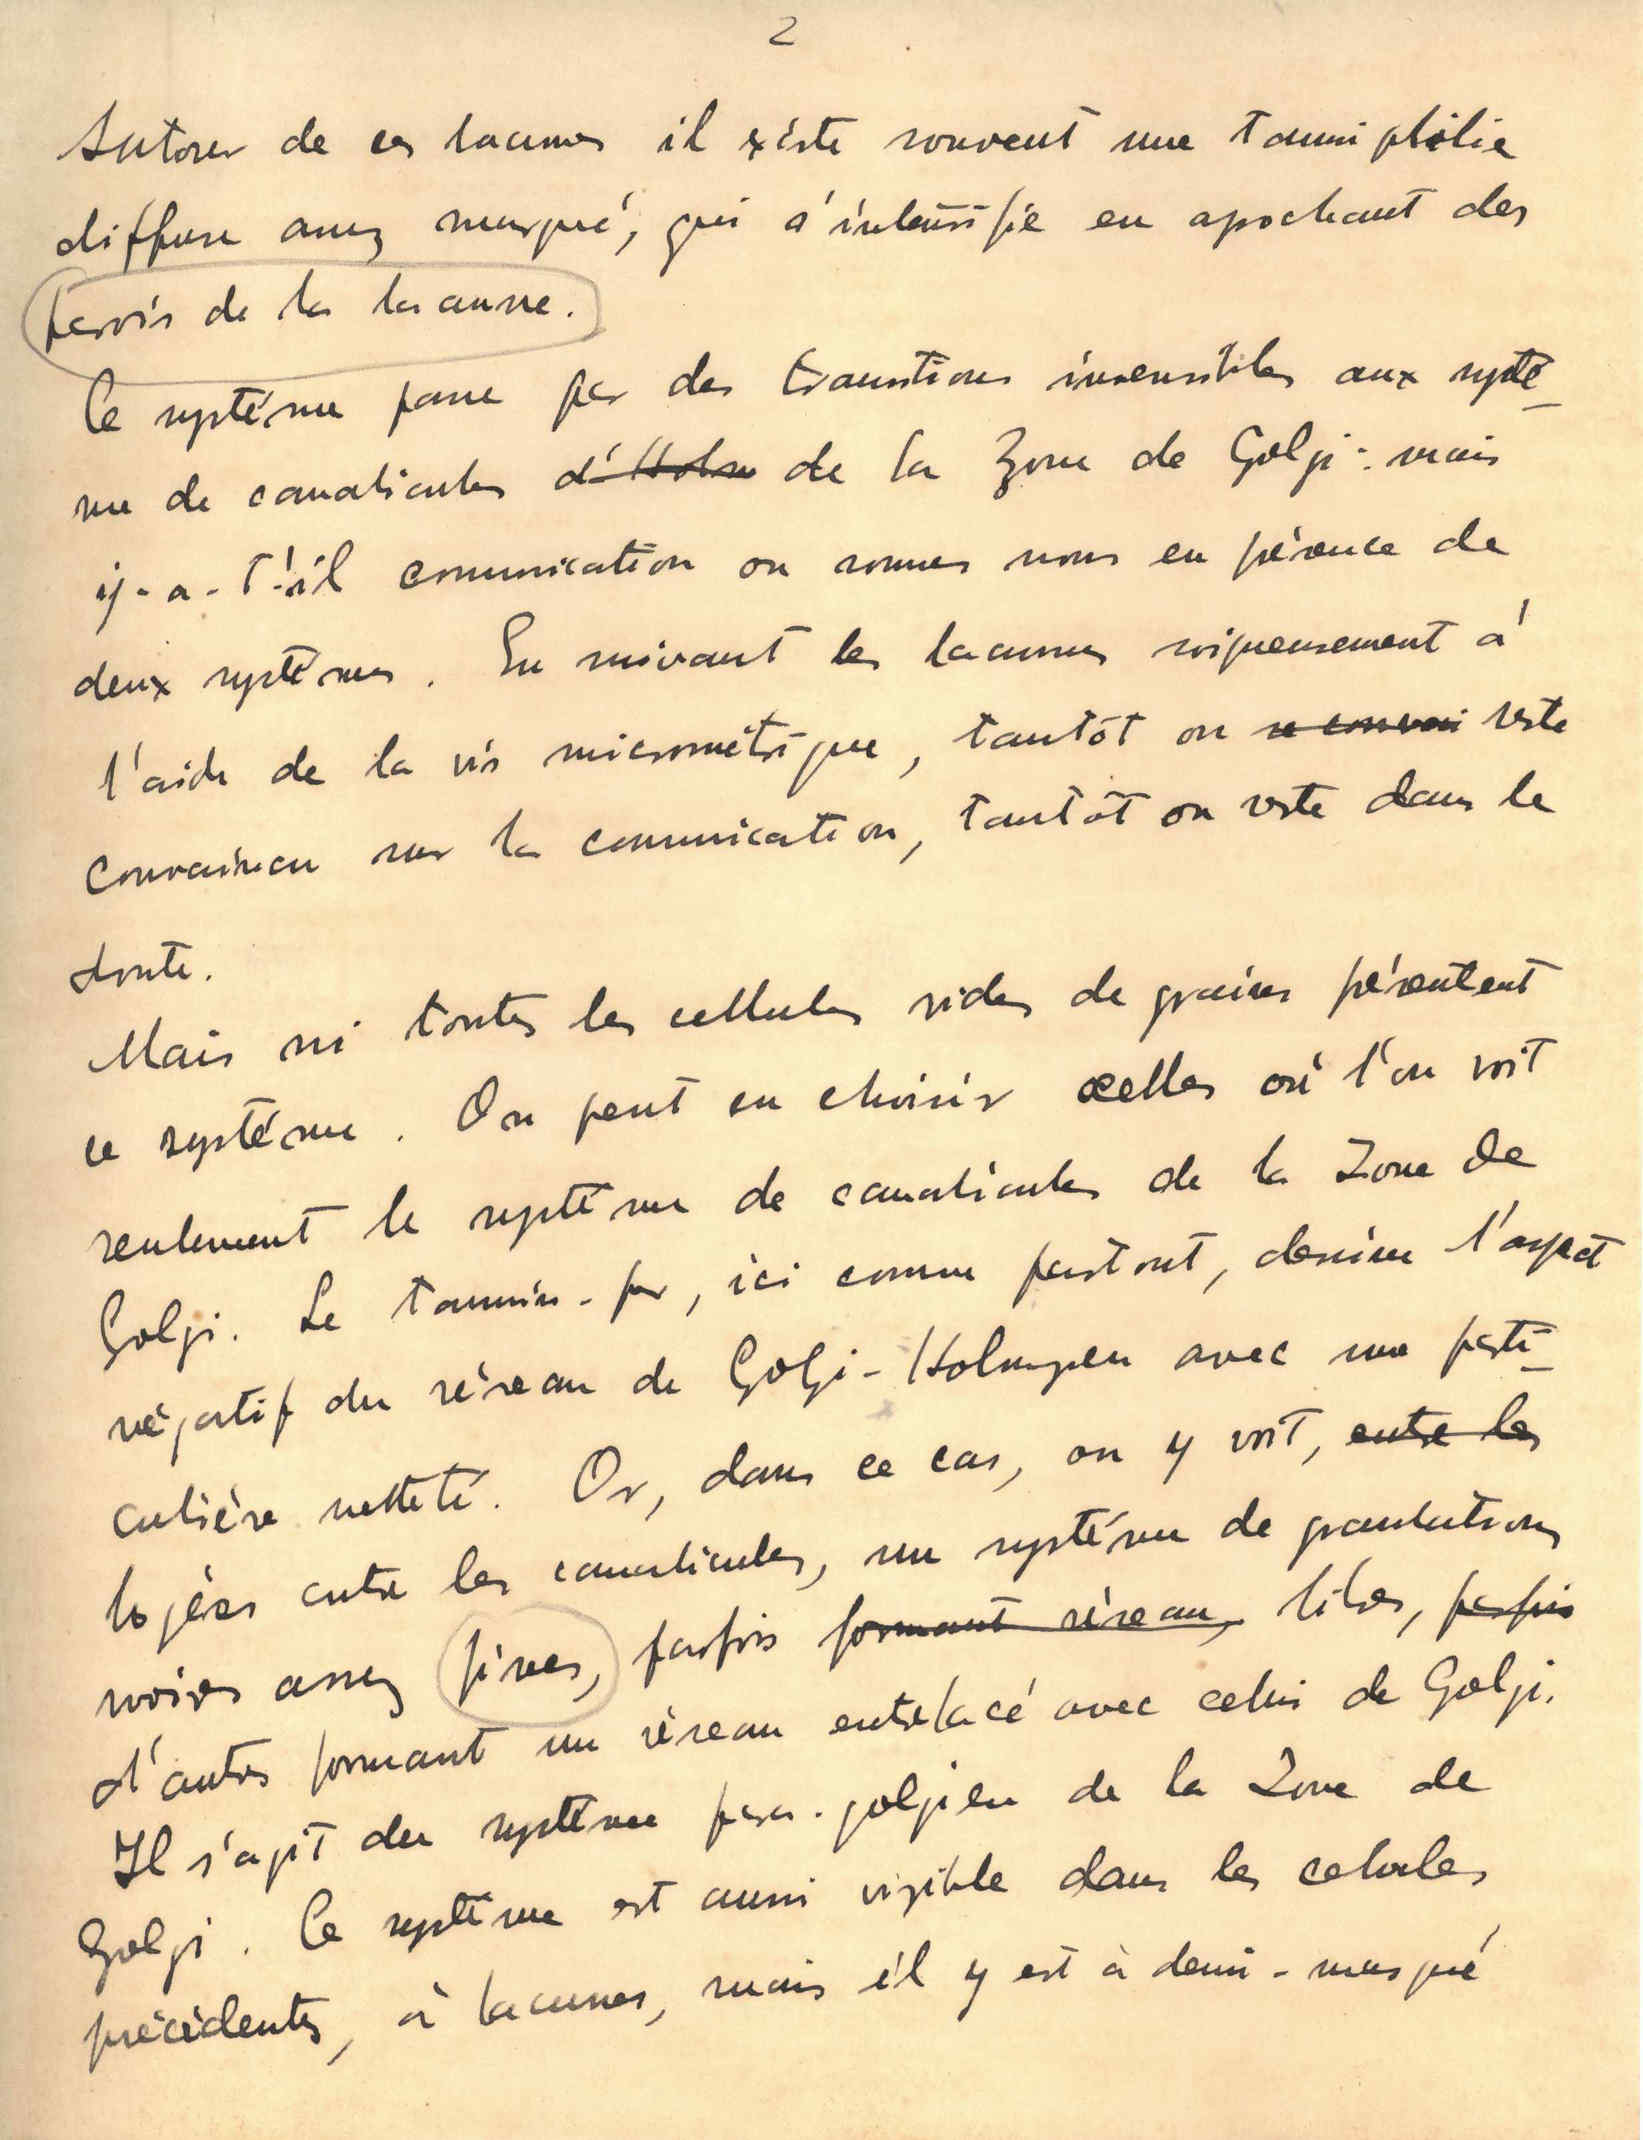 2
Autour de ces lacunes il existe souvent une tanniphilie
diffuse assez marqué, qui s'intensifie en aprochant des
parois de la lacunne.
Ce système passe par des transitions insensibles aux systè-
me de canalicules d'Holm de la Zone de Golgi: mais
ij-a-t'-il comunication ou sommes nous en présence de
deux systèmes. En suivant les lacunnes soigneusement à
l'aide de la vis micrométrique, tantôt on se convai reste
convaincu sur la comunication, tantôt on reste dans le
doute.
Mais ni toutes les cellules vides de graines présentent
ce système. On peut en choisir celles où l'on voit
seulement le système de canalicules de la Zone de
Golgi. Le tannin-fer, ici comme partout, dessine l'aspect
négatif du réseau de Golgi-Holmgren avec une parti-
culière netteté. Or, dans ce cas, on y voit, entre les
logées entre les canalicules, un système de granulations
noires assez fines, parfois formant réseau, libres, parfois
d'autres formant un réseau entrelacé avec celui de Golgi.
Il s'agit du système para-golgien de la Zone de
Golgi. Ce système est aussi visible dans les celules
précédentes, à lacunes, mais il y est à demi-masqué